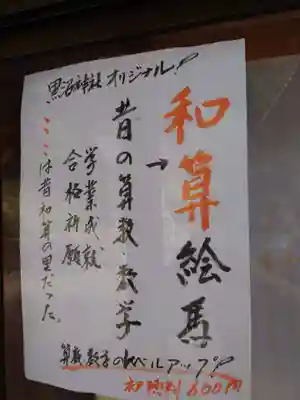 黒沼神社 オリジナル!
和算絵馬
→昔の算数・数学
学業成就
合格祈願
ここは昔和算の里だった。
算数、数学のレベルアップ!
初 600円